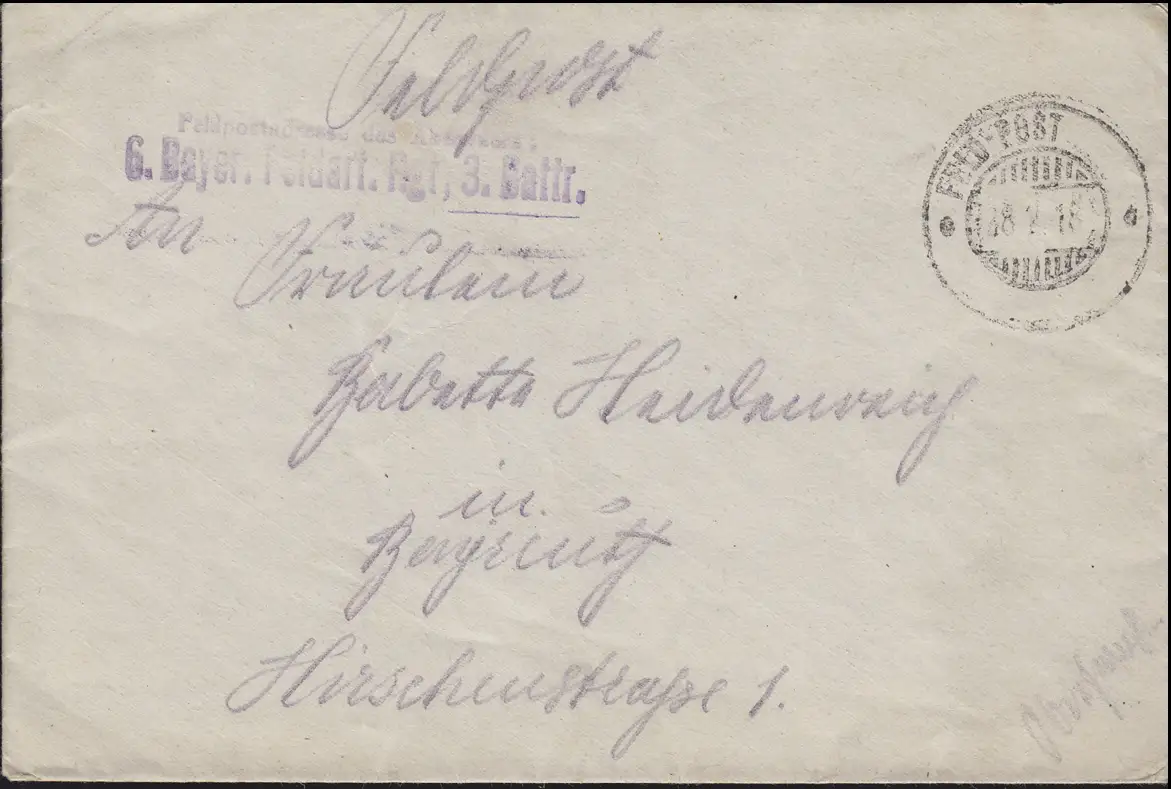 Feldpost
FELD-POST
Feldpostadresse des Absenders:
6. Bayer. Feldart. Rgt, 3. Battr.
18
An
Fräulein
Babette Heidenreich
in
Bayreuth
Hirschenstraße 1.